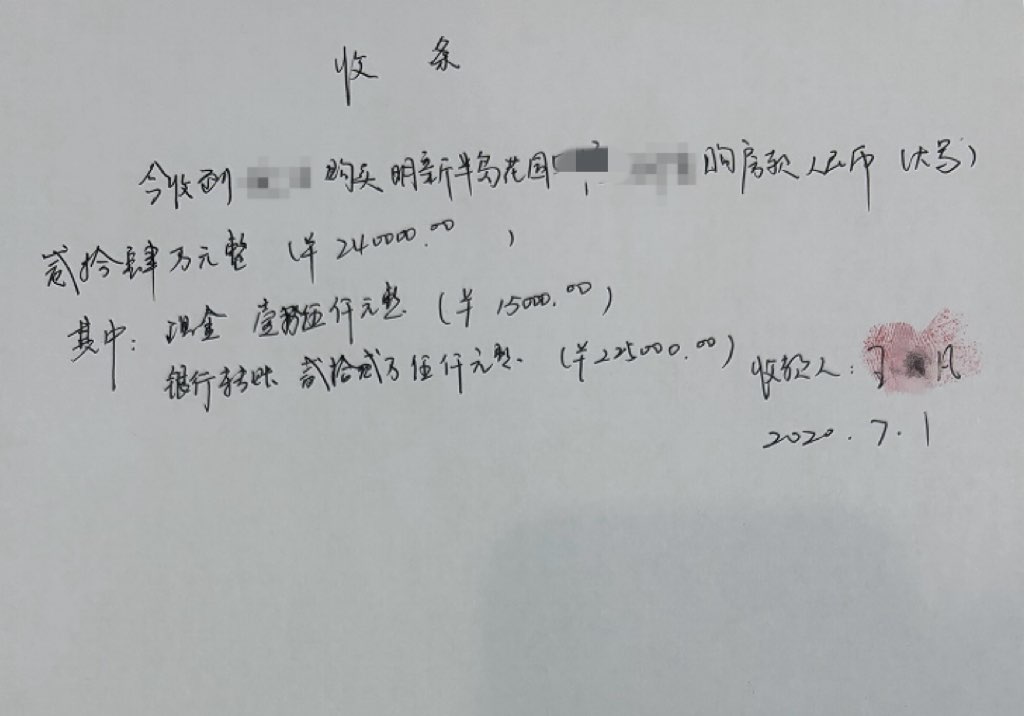 收条
今收到 购买 明新半岛花园 购房款 人民币 (大写)
贰拾肆万元整 (¥240000.00 )
其中: 现金 壹万伍仟元整 (¥15000.00)
银行转账 贰拾贰万伍仟元整. (¥225000.00)
收款人:
2020.7.1